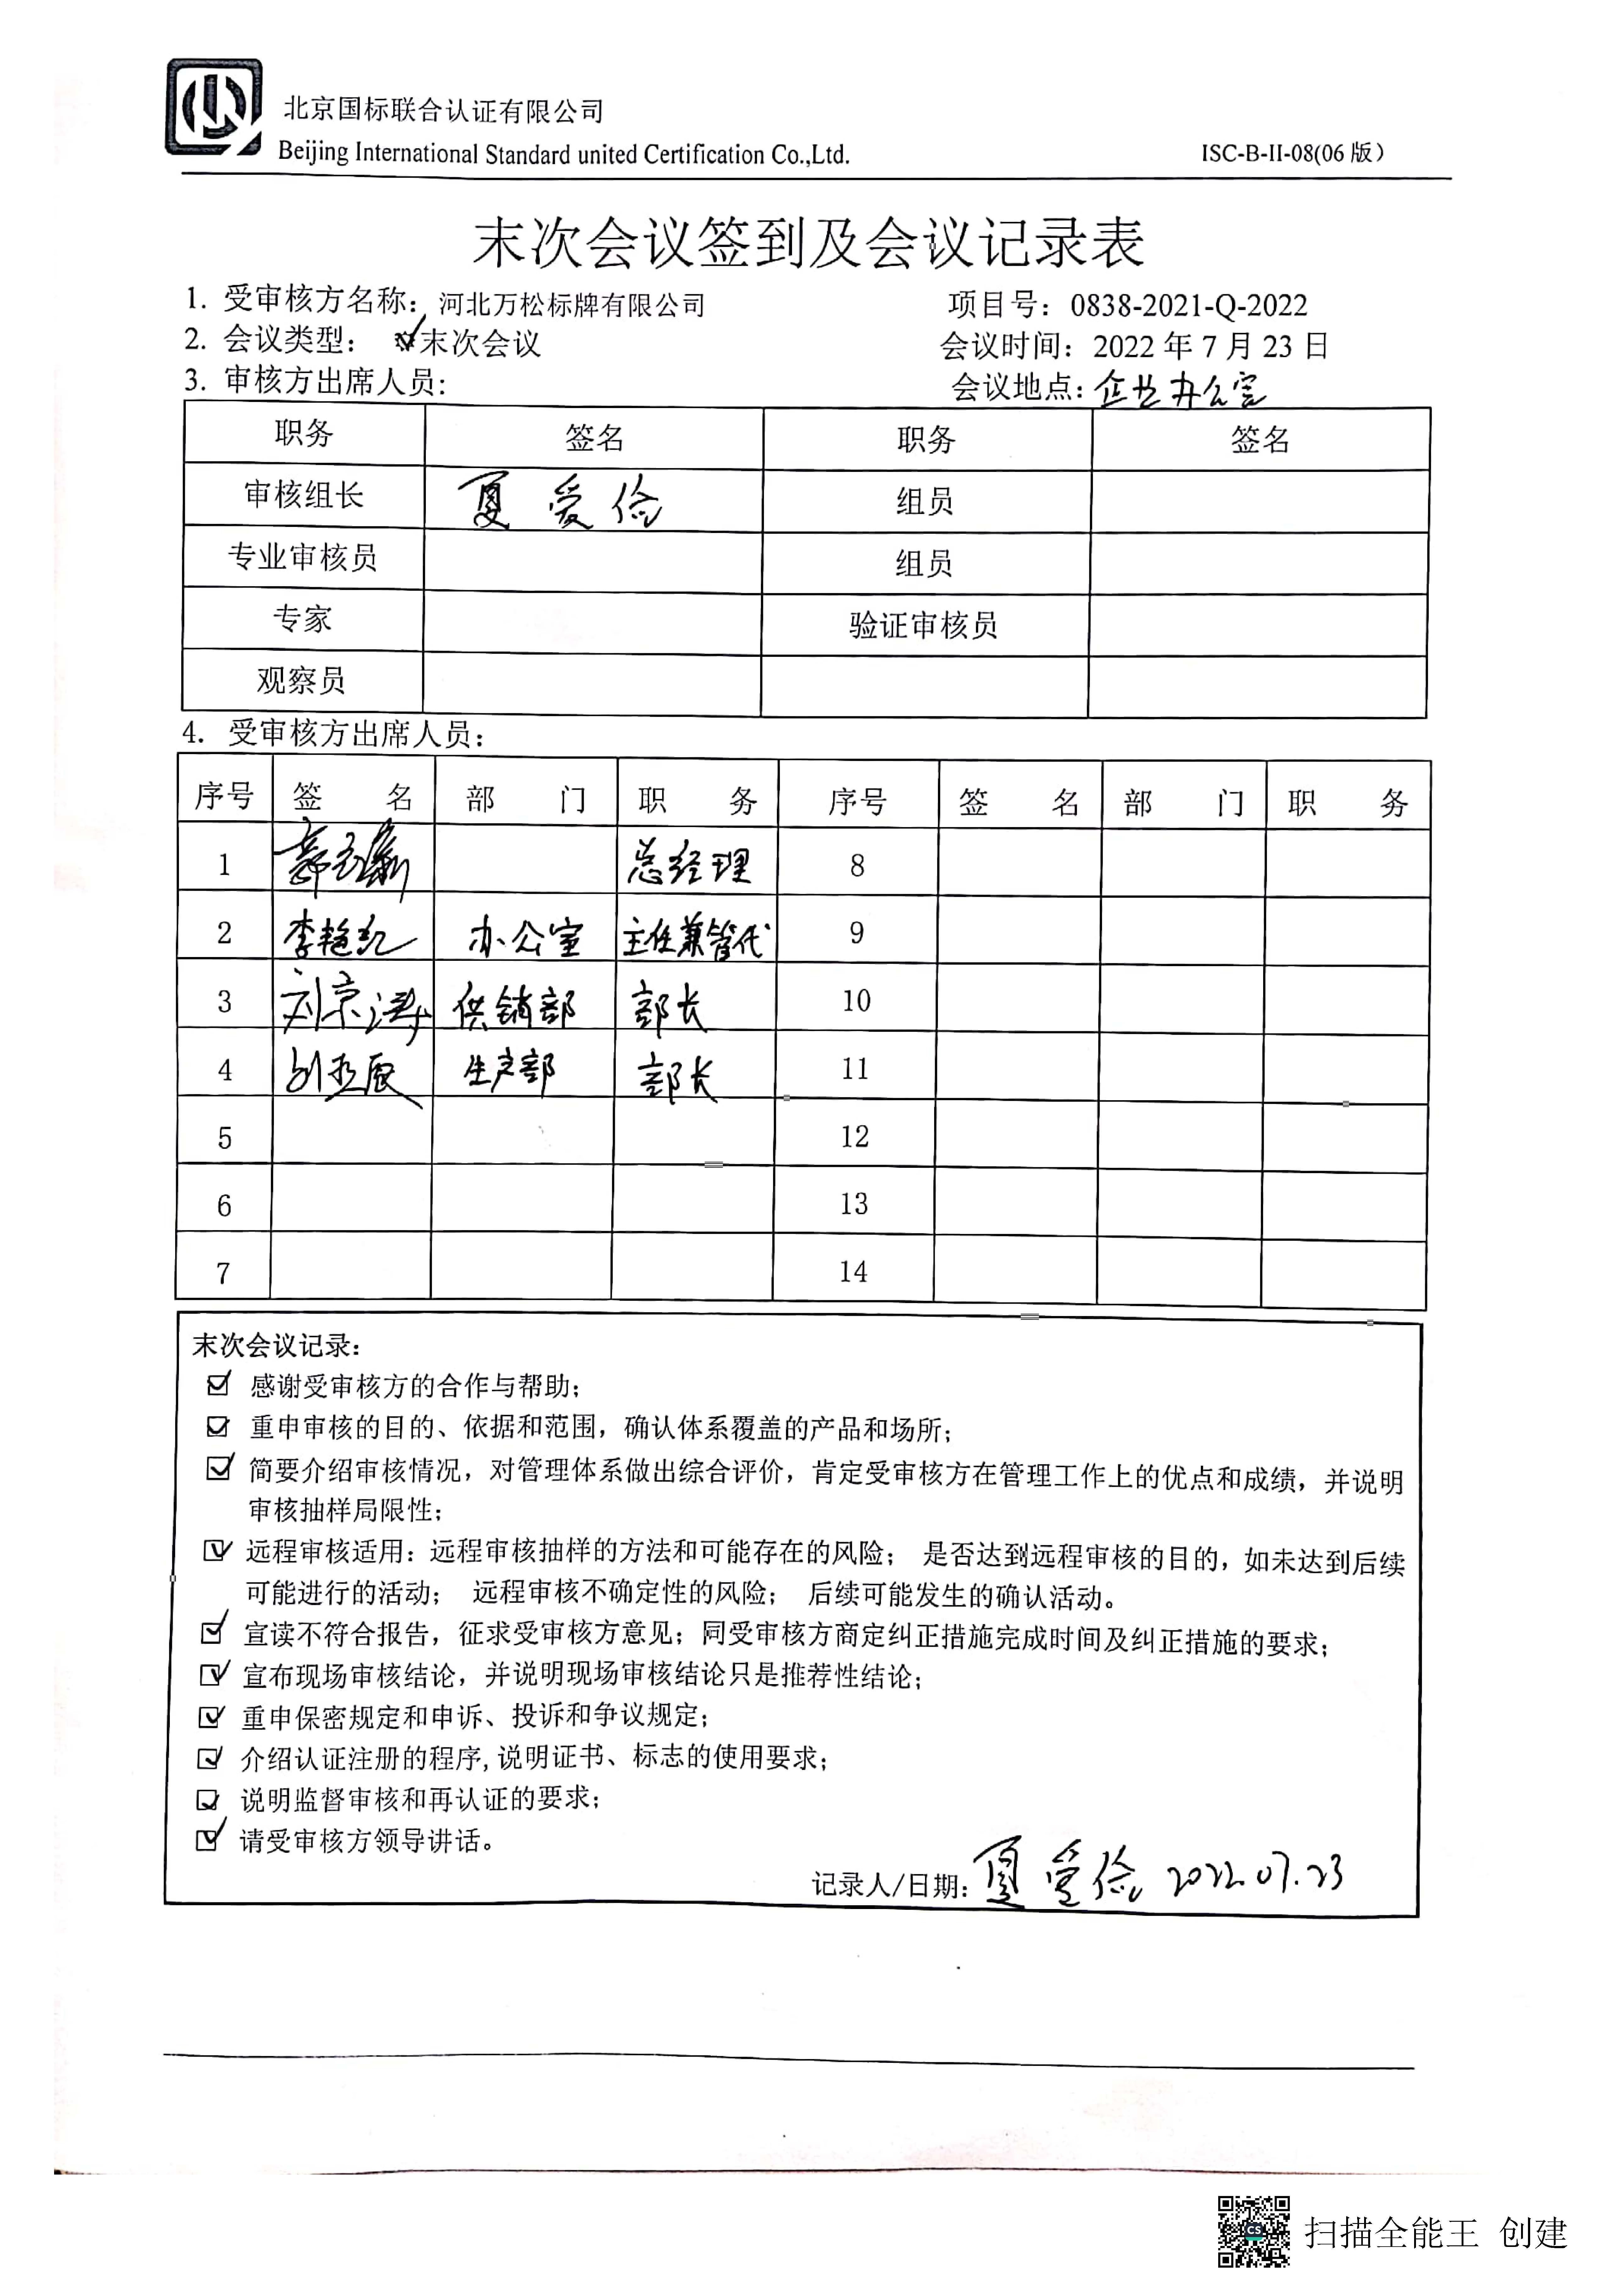 北京国标联合认证有限公司
Beijing International Standard united Certification Co.,Ltd.
ISC-B-II-08(06 版)
末次会议签到及会议记录表
1. 受审核方名称：河北万松标牌有限公司 项目号：0838-2021-Q-2022
2. 会议类型： 末次会议 会议时间：2022 年 7 月 23 日
3. 审核方出席人员: 会议地点：企业办公室
职务 签名 职务 签名
审核组长 夏爱俭 组员
专业审核员 组员
专家 验证审核员
观察员
4. 受审核方出席人员：
序号 签 名 部 门 职 务 序号 签 名 部 门 职 务
1 总经理 8
2 李艳红 办公室 主任兼管代 9
3 刘京涛 供销部 部长 10
4 生产部 部长 11
5 12
6 13
7 14
末次会议记录：
☑ 感谢受审核方的合作与帮助；
☑ 重申审核的目的、依据和范围，确认体系覆盖的产品和场所；
☑ 简要介绍审核情况，对管理体系做出综合评价，肯定受审核方在管理工作上的优点和成绩，并说明
审核抽样局限性；
☑ 远程审核适用：远程审核抽样的方法和可能存在的风险； 是否达到远程审核的目的，如未达到后续
可能进行的活动； 远程审核不确定性的风险； 后续可能发生的确认活动。
☑ 宣读不符合报告，征求受审核方意见；同受审核方商定纠正措施完成时间及纠正措施的要求；
☑ 宣布现场审核结论，并说明现场审核结论只是推荐性结论；
☑ 重申保密规定和申诉、投诉和争议规定；
☑ 介绍认证注册的程序,说明证书、标志的使用要求；
☑ 说明监督审核和再认证的要求；
☑ 请受审核方领导讲话。
记录人/日期：夏爱俭 2022.07.23
扫描全能王 创建